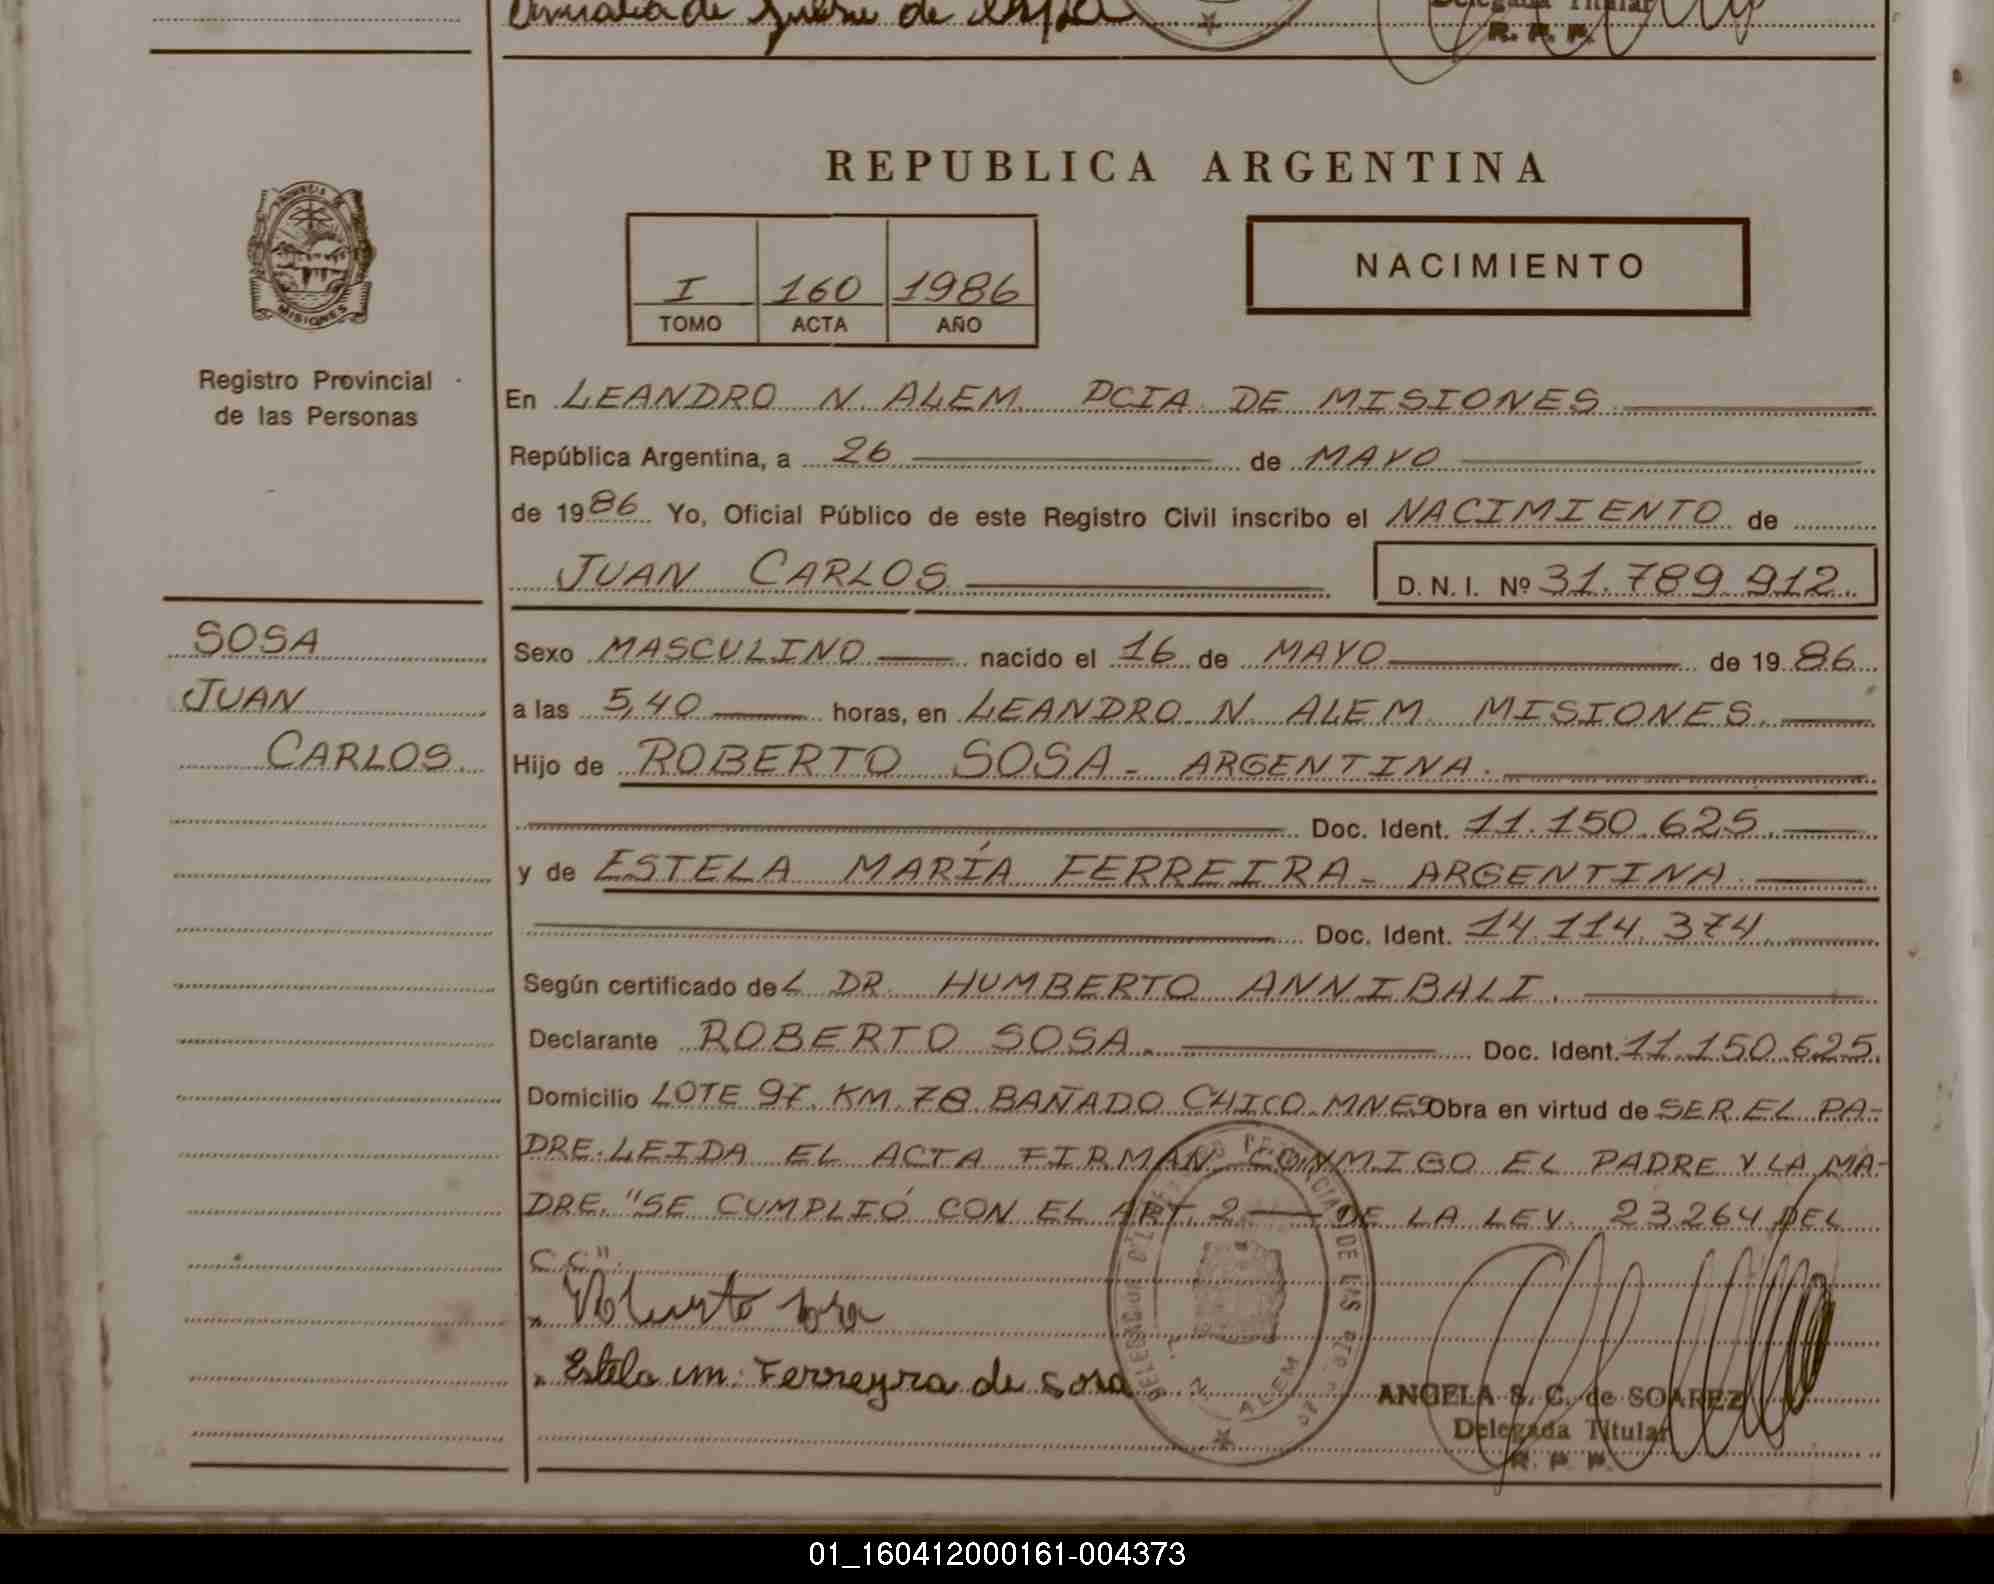 R. P. P.
REPUBLICA ARGENTINA
PROVINCIA DE
MISIONES
Registro Provincial
de las Personas
I 160 1986
TOMO ACTA AÑO
NACIMIENTO
En LEANDRO N. ALEM. PCIA. DE MISIONES
República Argentina, a 26 de MAYO
de 1986 Yo, Oficial Público de este Registro Civil inscribo el NACIMIENTO de
JUAN CARLOS D. N. I. Nº 31.789.912.
SOSA
JUAN
CARLOS.
Sexo MASCULINO nacido el 16 de MAYO de 1986
a las 5,40 horas, en LEANDRO N. ALEM. MISIONES.
Hijo de ROBERTO SOSA - ARGENTINA.
Doc. Ident. 11.150.625.
y de ESTELA MARÍA FERREIRA - ARGENTINA.
Doc. Ident. 14.114.374.
Según certificado deL DR. HUMBERTO ANNIBALI.
Declarante ROBERTO SOSA. Doc. Ident. 11.150.625.
Domicilio LOTE 97. KM. 78 BAÑADO CHICO. MNES Obra en virtud de SER EL PA-
DRE. LEIDA EL ACTA FIRMAN CONMIGO EL PADRE Y LA MA-
DRE. "SE CUMPLIÓ CON EL ART. 2 — DE LA LEY 23264 DEL
C.C".
Roberto Sosa
Estela M. Ferreyra de Sosa
ALEM
ANGELA S. C. de SOAREZ
Delegada Titular
R. P. P.
01_160412000161-004373